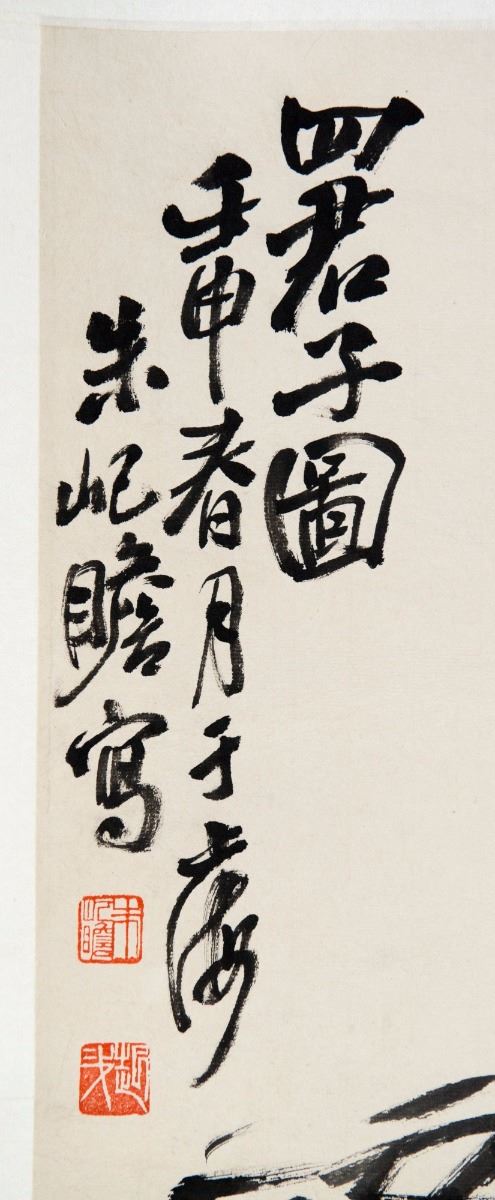 四君子圖
壬申春月于上海
朱屺瞻寫
朱屺瞻
起哉